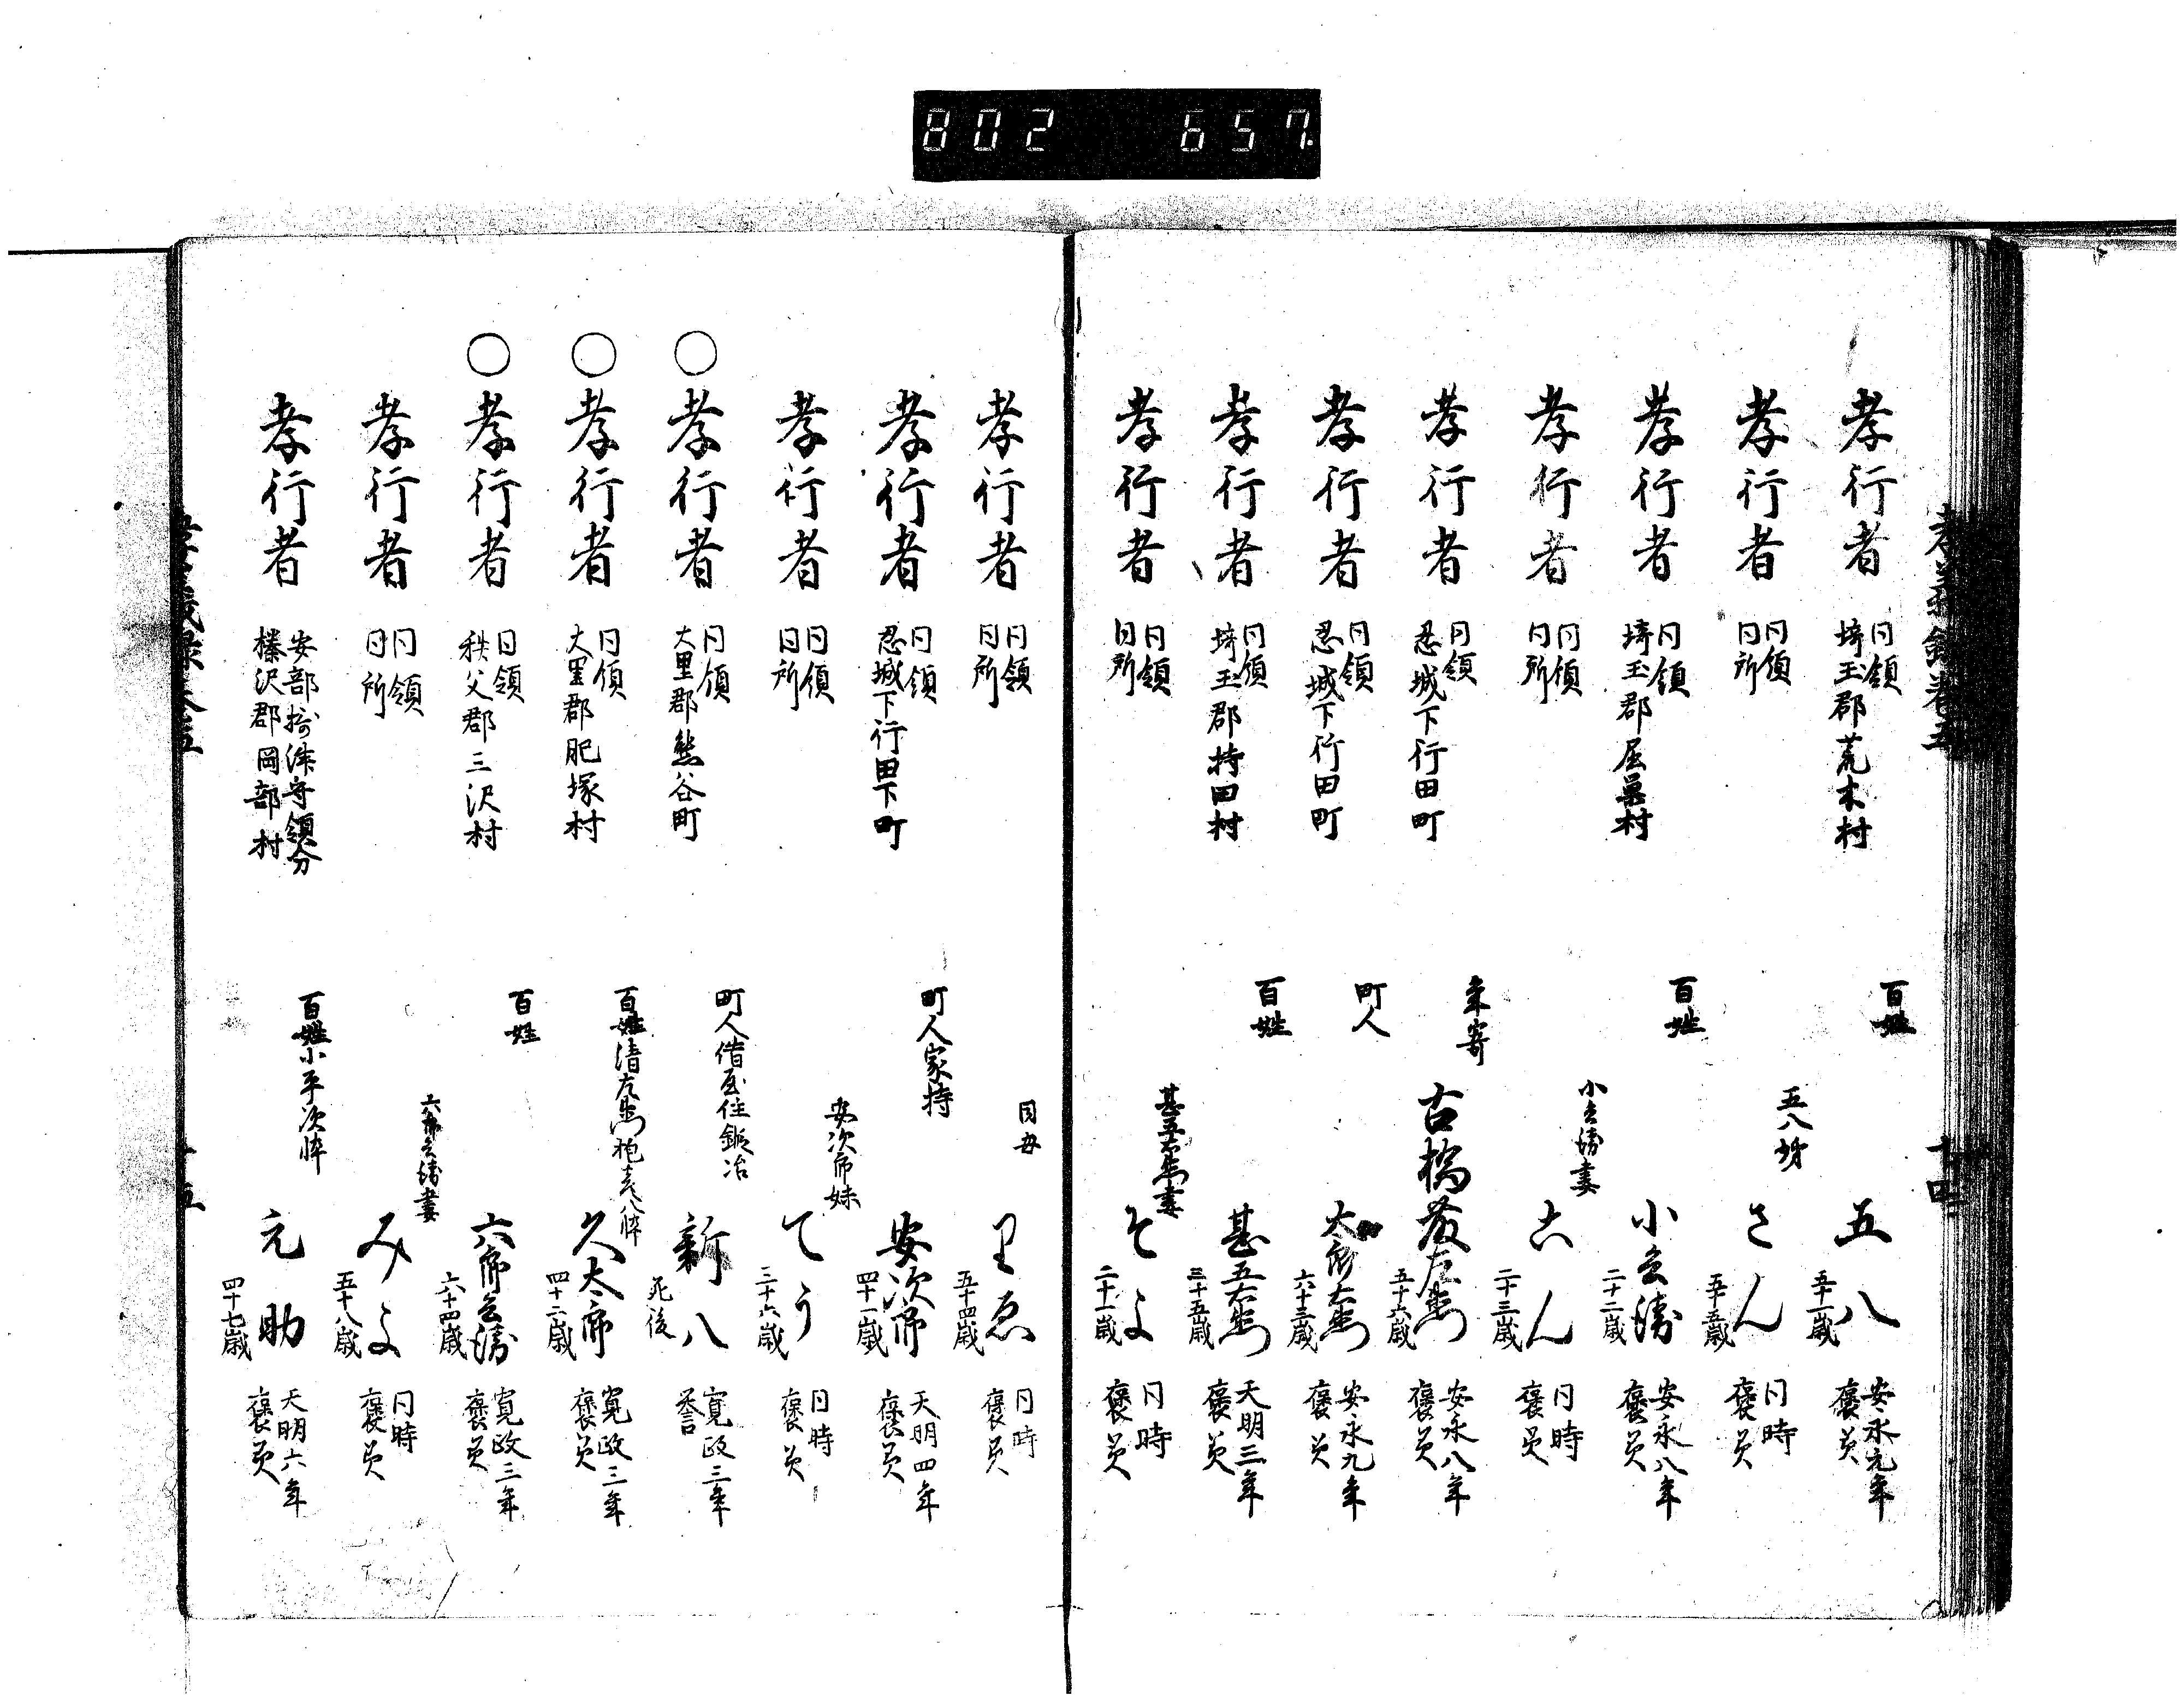 802 657
孝行者 同領 埼玉郡荒木村 百姓 五八 五十一歳 安永元年 褒美
孝行者 同領 同所 五八妹 さん 褒美 同時
孝行者 同領 埼玉郡屈巣村 百姓 小兵衛 二十二歳 安永八年 褒美
孝行者 同領 同所 小兵衛妻 こん 二十三歳 同時 褒美
孝行者 同領 忍城下行田町 年寄 古橋 五十六歳 安永八年 褒美
孝行者 同領 忍城下行田町 町人 六十三歳 安永九年 褒美
孝行者 同領 埼玉郡持田村 百姓 甚五右衛門 三十五歳 天明三年 褒美
孝行者 同領 同所 甚五右衛門妻 そよ 二十一歳 同時 褒美
孝行者 同領 同所 同母 りゑ 五十四歳 同時 褒美
孝行者 同領 忍城下行田下町 町人家持 安次郎 四十一歳 天明四年 褒美
孝行者 同領 同所 安次郎妹 てう 三十六歳 同時 褒美
○孝行者 同領 大里郡熊谷町 町人借屋住鍛冶 新八 死後 寛政三年 誉
○孝行者 同領 大里郡肥塚村 百姓清左衛門 久太郎 四十二歳 寛政三年 褒美
○孝行者 同領 秩父郡三沢村 百姓 六郎兵衛 六十四歳 寛政三年 褒美
孝行者 同領 同所 六郎兵衛妻 みよ 五十八歳 同時 褒美
孝行者 安部摂津守領分 榛沢郡岡部村 百姓小平次悴 元助 四十七歳 天明六年 褒美